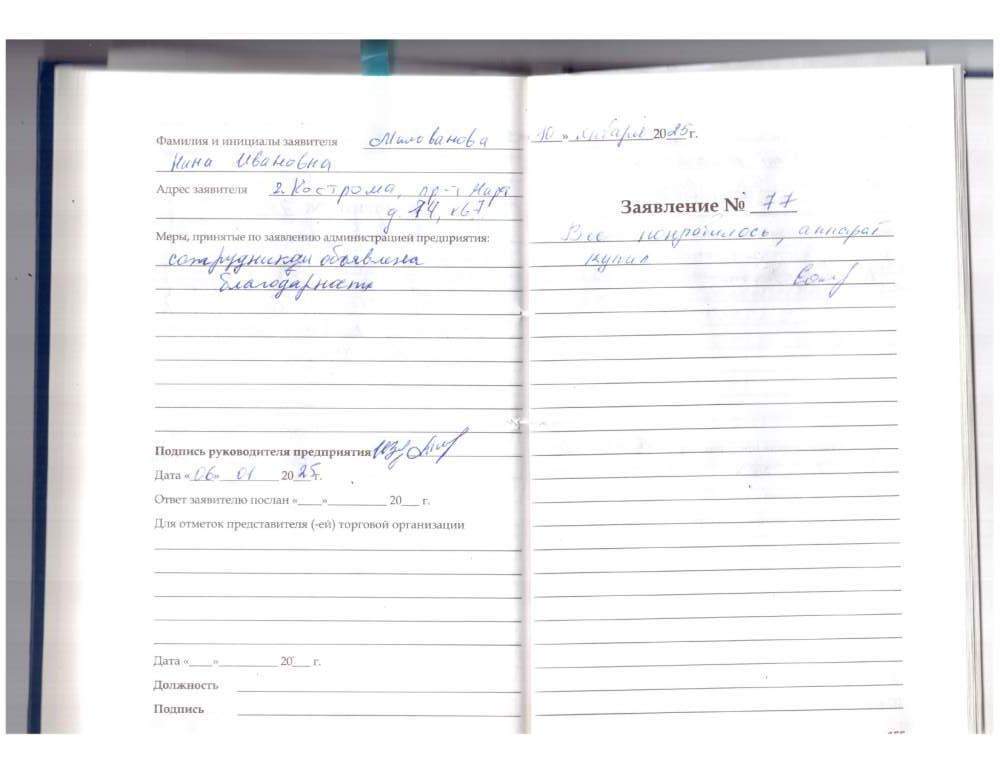 Фамилия и инициалы заявителя Милованова
Нина Ивановна
Адрес заявителя г. Кострома, пр-т
д. 14, кв 7
Меры, принятые по заявлению администрацией предприятия:
сотруднику объявлена
благодарность
Подпись руководителя предприятия
Дата «06» 01 2025г.
Ответ заявителю послан «___»__________ 20___ г.
Для отметок представителя (-ей) торговой организации
Дата «____»__________ 20___ г.
Должность
Подпись
10 » января 2025г.
Заявление № 77
Все понравилось, аппарат
купил